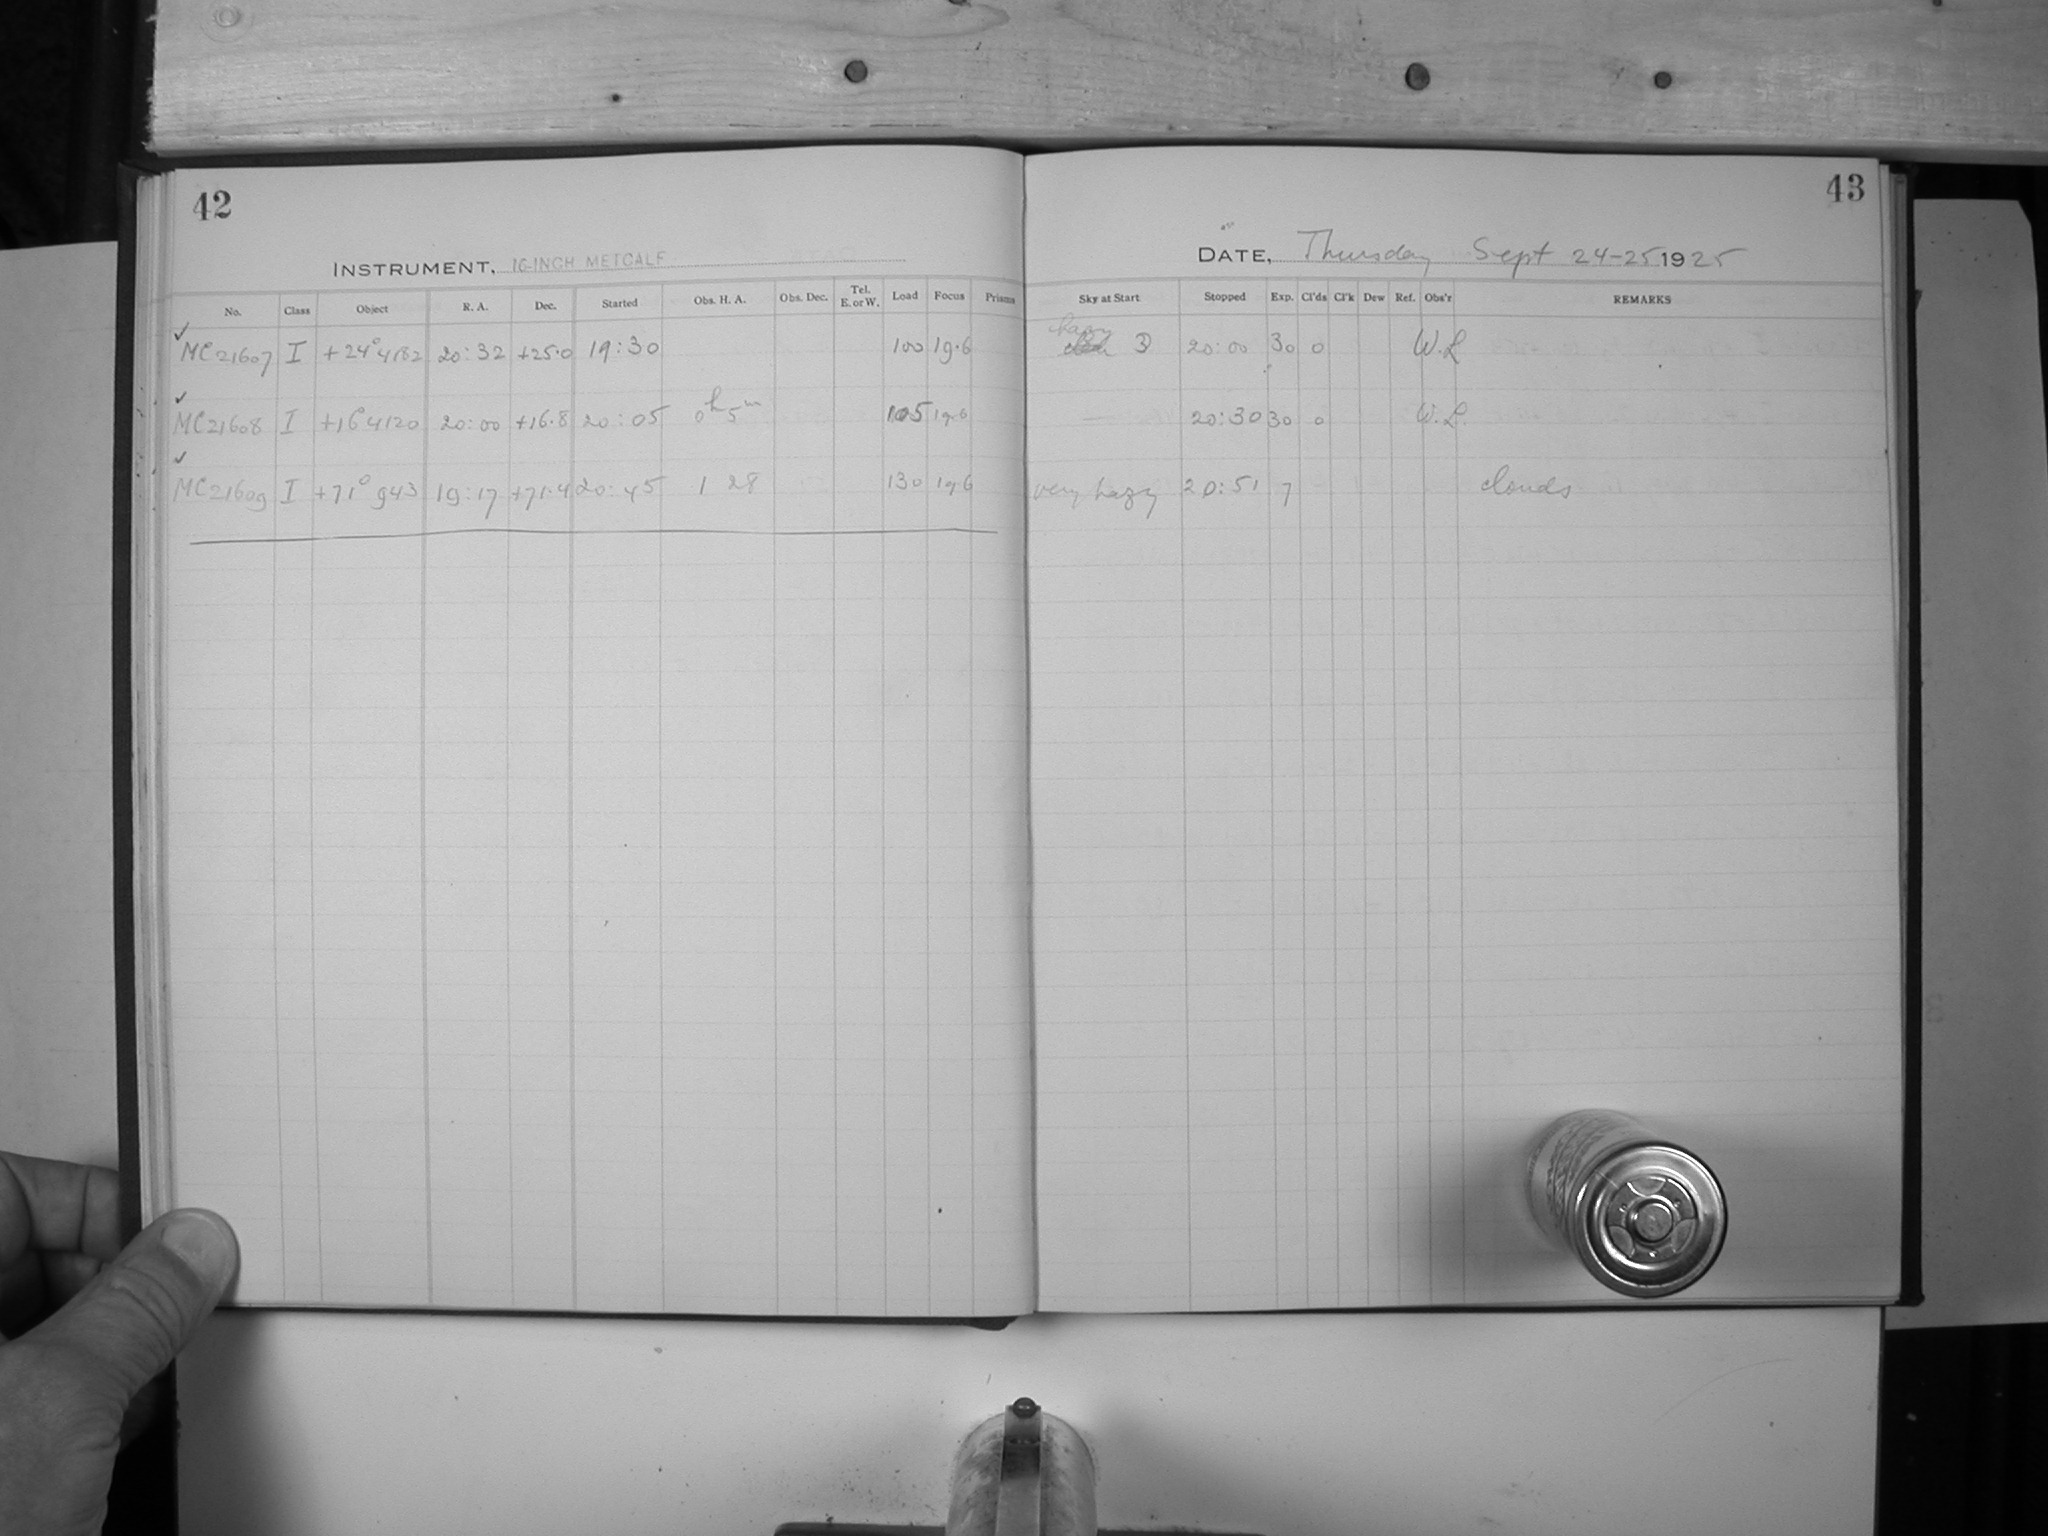 42
INSTRUMENT, 16-INCH METCALF
No. Class Object R. A. Dec. Started Obs. H. A. Obs. Dec. Tel. E. or W. Load Focus Prisms
MC21607 I +24°4182 20:32 +25.0 19:30 100 19.6
MC21608 I +16°4120 20:00 +16.8 20:05 0h 5m 105 19.6
MC21609 I +71°943 19:17 +71.4 20:45 1 28 130 19.6
43
DATE, Thursday Sept 24-25 1925
Sky at Start Stopped Exp. Cl'ds Cl'k Dew Ref. Obs'r REMARKS
hazy 3 20:00 30 0 W.L
— 20:30 30 0 W.L.
very hazy 20:51 7 clouds